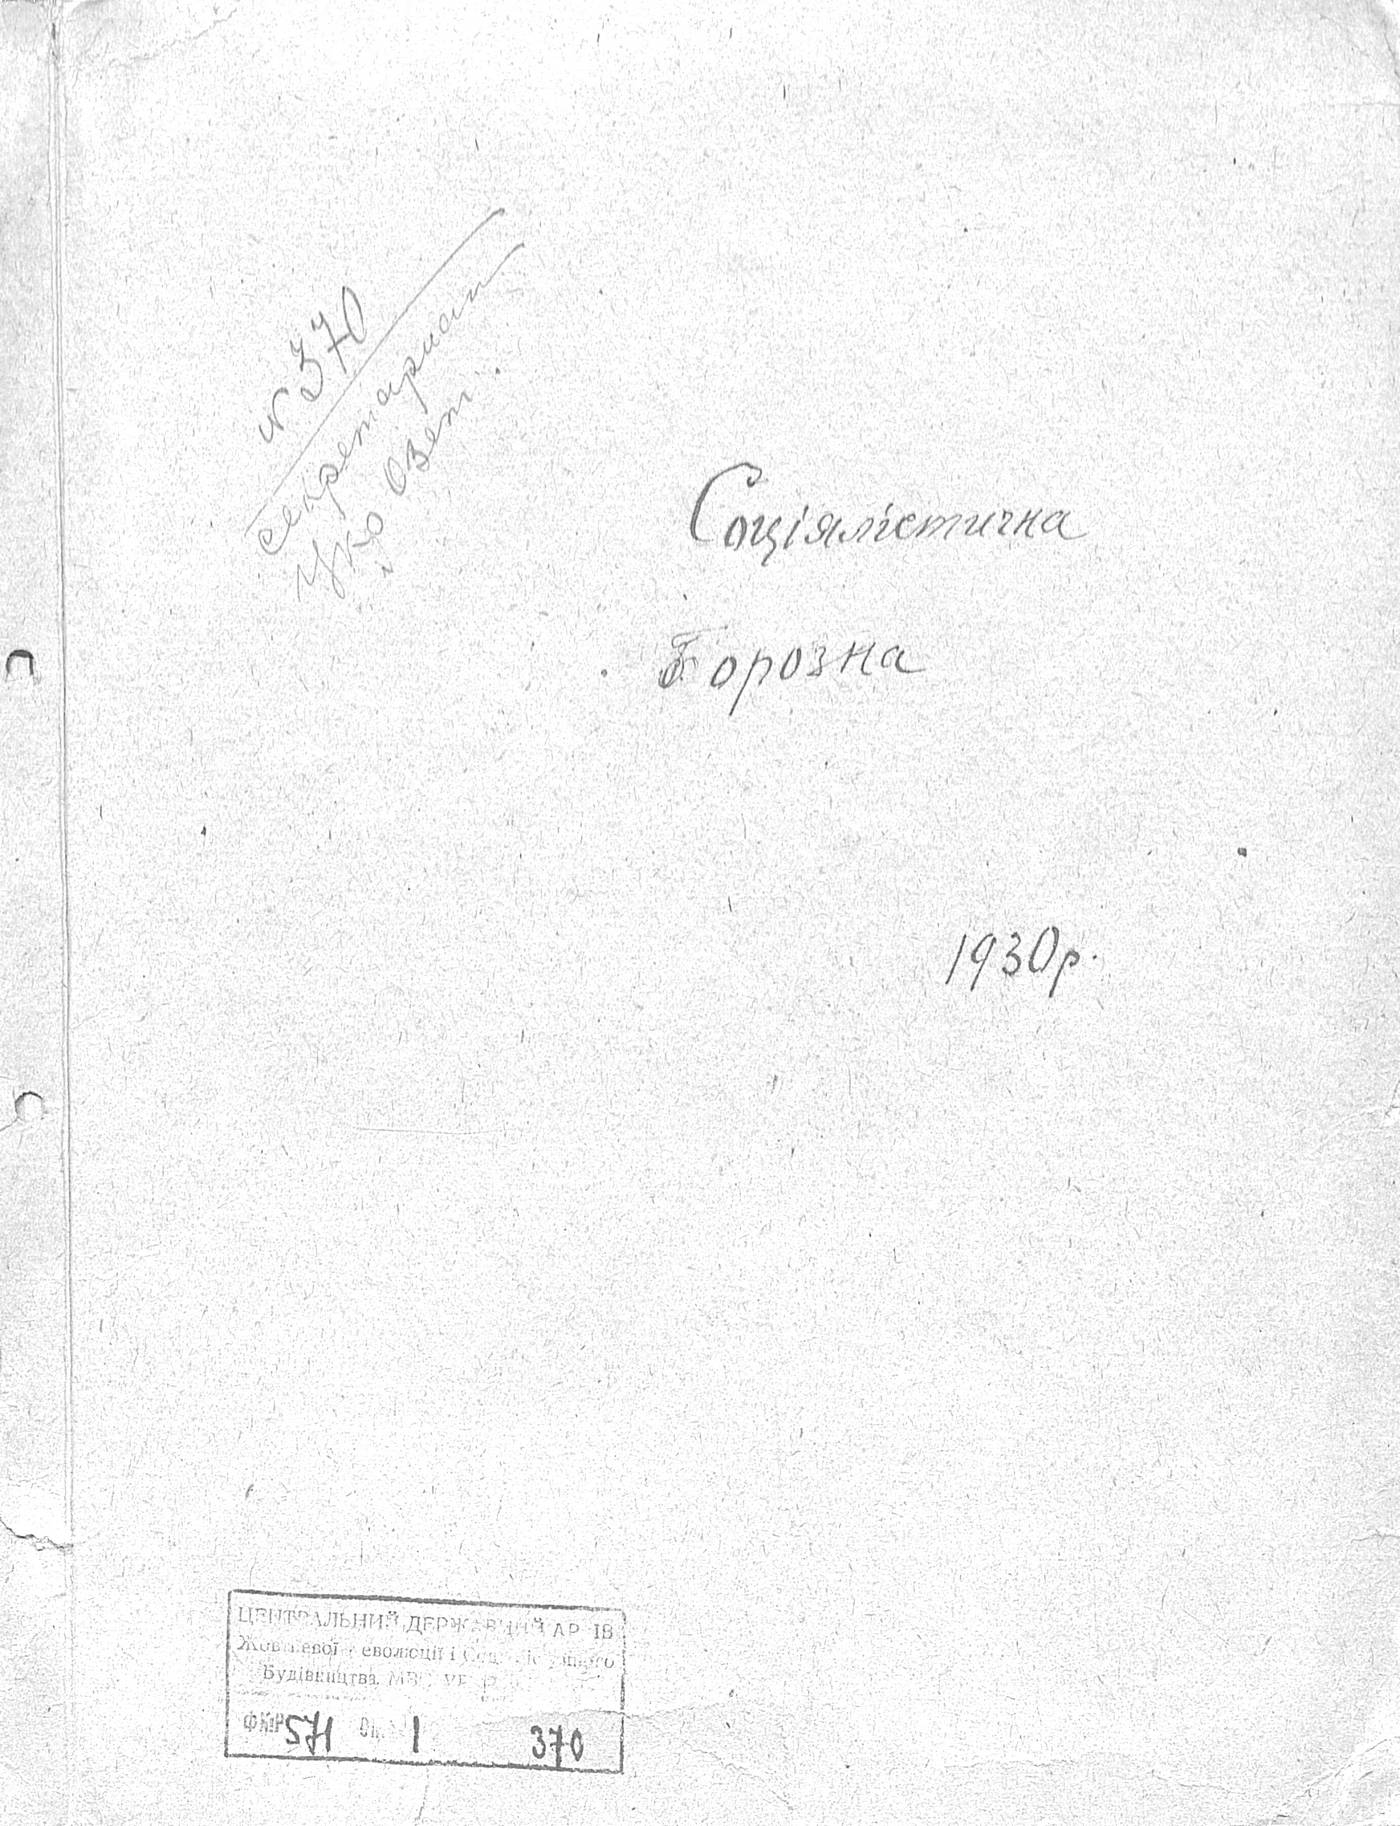 № 370
секретариат
Озет.
Соціялістична
Борозна
1930р.
ЦЕНТРАЛЬНИЙ ДЕРЖАВНИЙ АРХІВ
Жовтневої Революції і Соціалістичного
Будівництва
ФК№ 571 Оп. 1 370